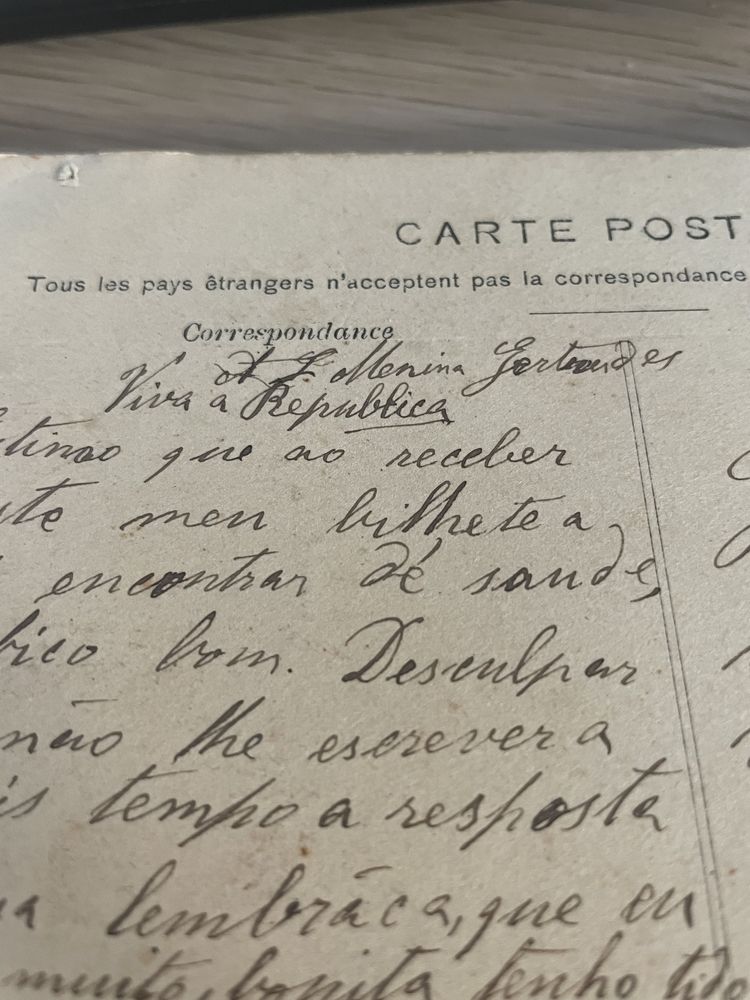 CARTE POST
Tous les pays êtrangers n'acceptent pas la correspondance
Correspondance
Menina Gertrudes
Viva a Republica
timo que ao receber
te meu bilhete a
encontrar dé saude,
fico bom. Desculpar
não lhe escrever a
is tempo a resposta
a lembrāca, que eu
muito bonita tenho tido